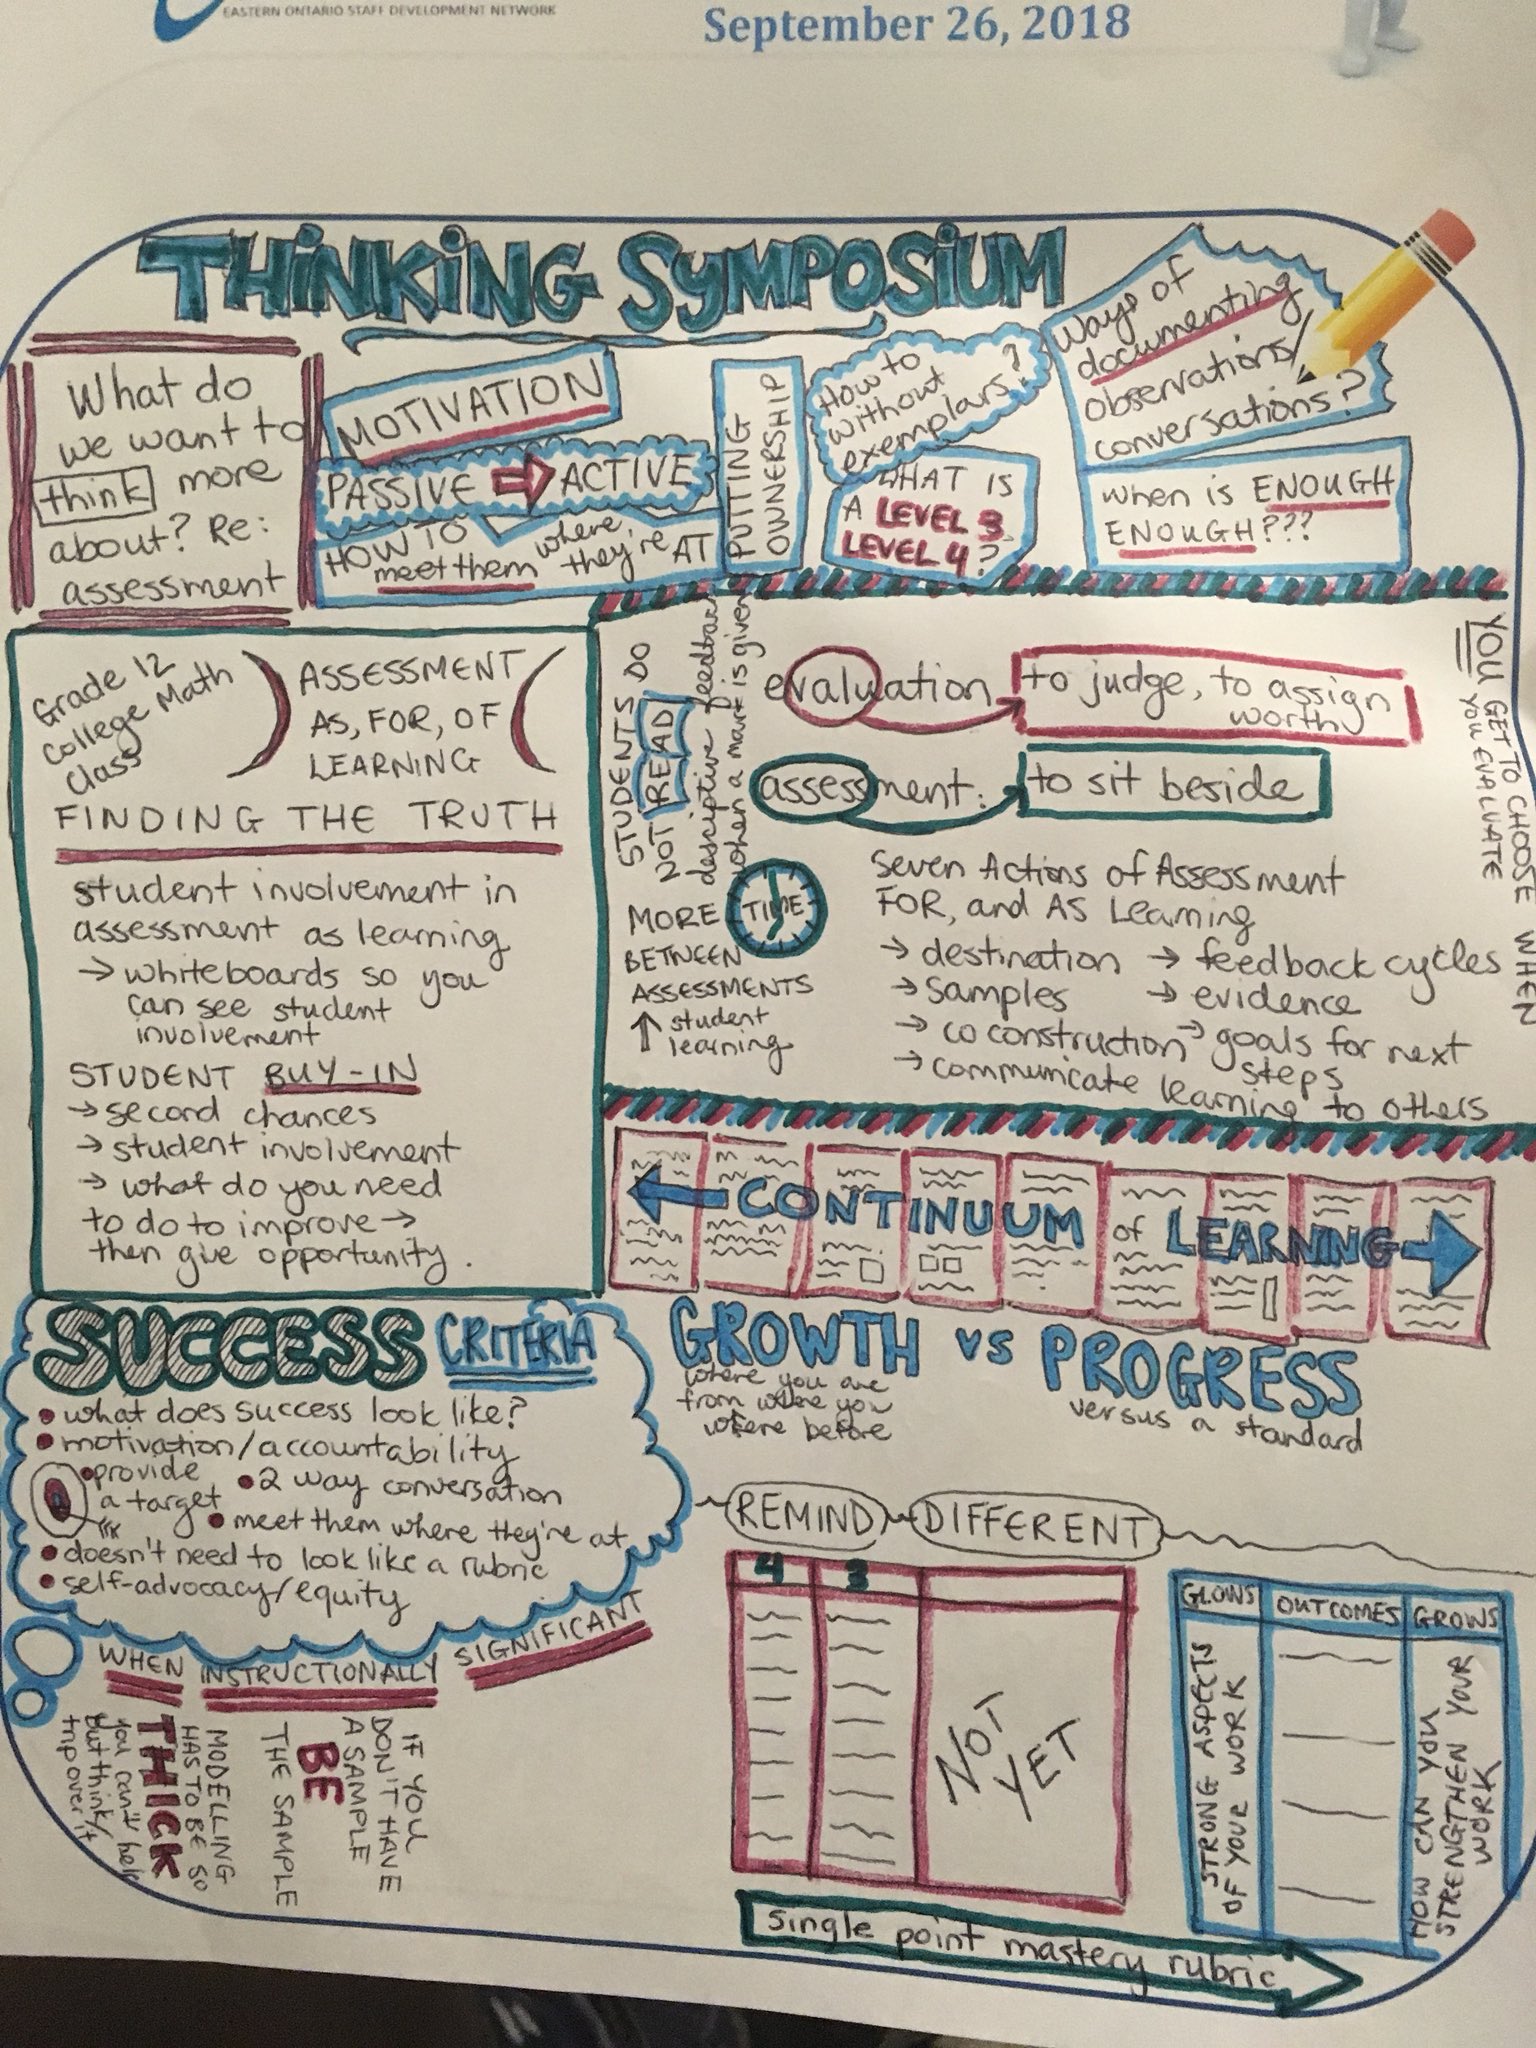 EASTERN ONTARIO STAFF DEVELOPMENT NETWORK
September 26, 2018
THINKING SYMPOSIUM
What do
we want to
think more
about? Re:
assessment
MOTIVATION
PASSIVE → ACTIVE
HOW TO
meet them where
they're AT
PUTTING
OWNERSHIP
How to
without
exemplars?
WHAT IS
A LEVEL 3
LEVEL 4?
Ways of
documenting
observations/
conversations?
When is ENOUGH
ENOUGH???
Grade 12
College Math
Class
ASSESSMENT
AS, FOR, OF
LEARNING
FINDING THE TRUTH
student involvement in
assessment as learning
→ whiteboards so you
can see student
involvement
STUDENT BUY-IN
→ second chances
→ student involvement
→ what do you need
to do to improve →
then give opportunity.
STUDENTS DO
NOT READ
desciptive feedback
when a mark is given
evaluation
to judge, to assign
worth
assessment:
to sit beside
YOU GET TO CHOOSE WHEN
YOU EVALUATE
MORE TIME
BETWEEN
ASSESSMENTS
↑ student
learning
Seven Actions of Assessment
FOR, and AS Learning
→ destination → feedback cycles
→ samples → evidence
→ co construction → goals for next
steps
→ communicate learning to others
← CONTINUUM of LEARNING →
GROWTH vs PROGRESS
where you are
from where you
where before
versus a standard
SUCCESS CRITERIA
• what does success look like?
• motivation/accountability
• provide
a target
• 2 way conversation
• meet them where they're at
• doesn't need to look like a rubric
• self-advocacy/equity
WHEN INSTRUCTIONALLY SIGNIFICANT
MODELLING
HAS TO BE SO
THICK
you can't help
but think/
trip over it
IF YOU
DON'T HAVE
A SAMPLE
BE
THE SAMPLE
REMIND DIFFERENT
4 3
NOT
YET
GLOWS OUTCOMES GROWS
STRONG ASPECTS
OF YOUR WORK
HOW CAN YOU
STRENGTHEN YOUR
WORK
single point mastery rubric